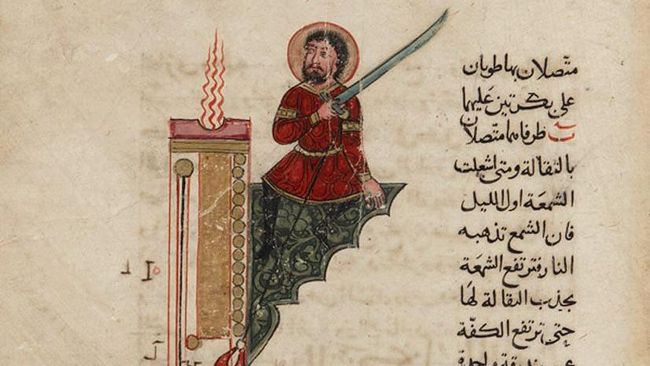 متصلان بها طويان
على بكرتين عليها
طرفاهما متصلان
بالثقالة ومتى اشعلت
الشمعة اول الليل
فان الشمع تذهبه
النار فترتفع الشمعة
بجذب الثقالة لها
حتى ترتفع الكفة